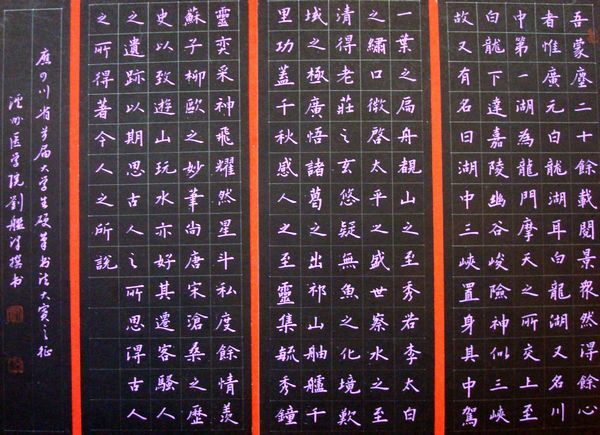 吾蒙塵二十餘載閱景衆然淂餘心
者惟廣元白龍湖耳白龍湖又名川
中第一湖為龍門摩天之所交上至
白龍下達嘉陵幽谷峻險神似三峽
故又有名曰湖中三峽置身其中駕
一葉之扁舟覩山之至秀若李太白
之繡口微啓太平之盛世察水之至
清得老莊之玄悠疑無魚之化境歎
域之極廣悟諸葛之出祁山舳艫千
里功蓋千秋感人之至靈集毓秀鐘
靈奕采神飛耀然星斗私度餘情羨
蘇子柳歐之妙筆尚唐宋滄桑之歷
史以致遊山玩水亦好其遷客騷人
之遺跡以期思古人之所思淂古人
之所得著今人之所說
應四川省首届大学生硬筆书法大赛之征
泸州医学院劉艦洋撰书